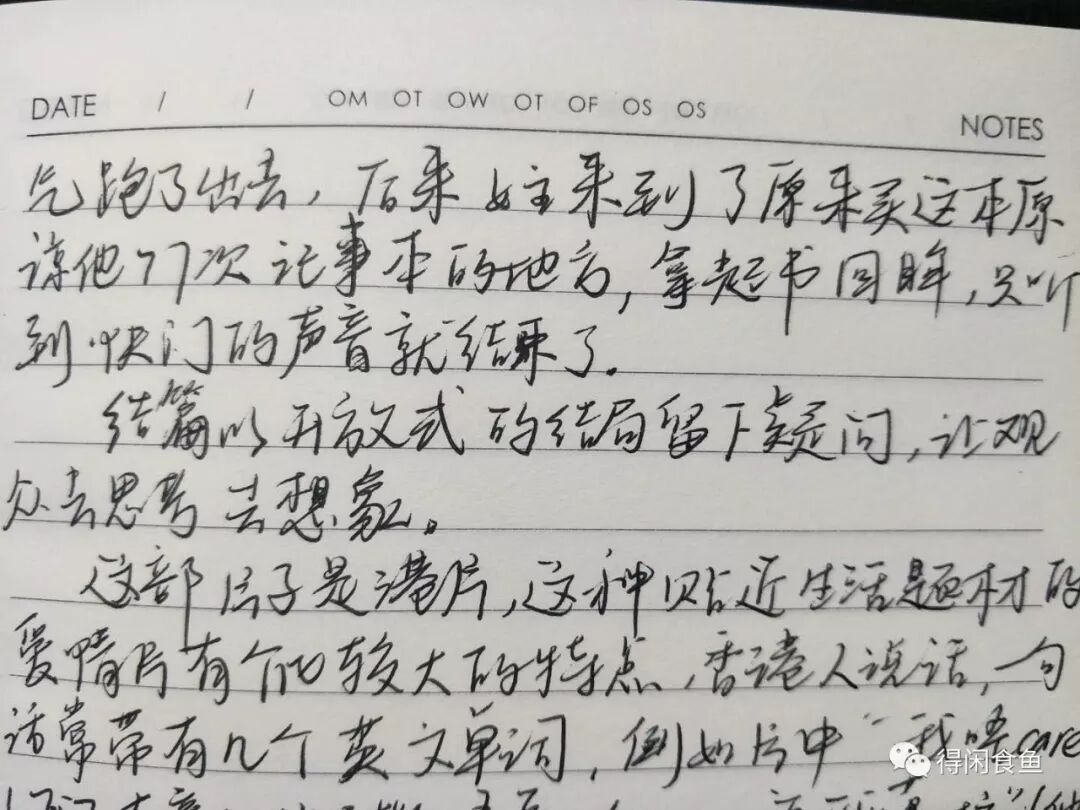 DATE / / OM OT OW OT OF OS OS NOTES
气跑了出去，后来女主来到了原来买这本原
谅他77次记事本的地方，拿起书回眸，只听
到快门的声音就结束了。
结篇以开放式的结局留下疑问，让观
众去思考去想象。
这部片子是港片，这种贴近生活题材的
爱情片有个比较大的特点，香港人说话，一句
话常带有几个英文单词，例如片中“我唔care
得闲食鱼